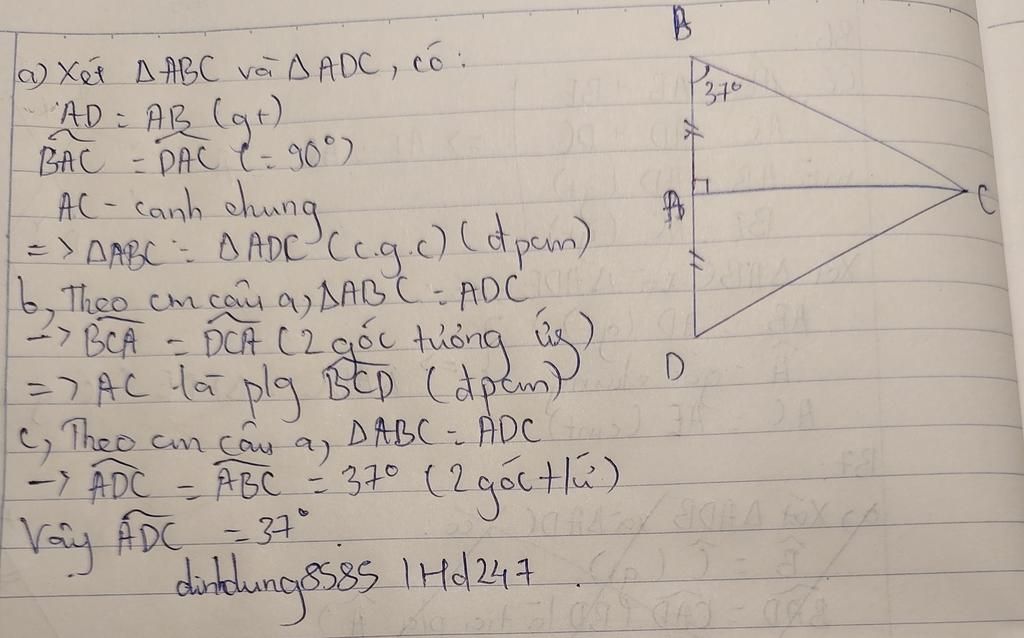 a) Xét ΔABC và ΔADC, có:
AD = AB (gt)
BAC = DAC (= 90°)
AC - canh chung
=> ΔABC = ΔADC (c.g.c) (đpcm)
b, Theo cm câu a, ΔABC = ADC
-> BCA = DCA (2 góc tương ứg)
=> AC là plg BCD (đpcm)
c, Theo cm câu a, ΔABC = ADC
-> ADC = ABC = 37° (2 góc t/ứ)
Vây ADC = 37°.
dinhdung8585 1Hd247.
B
37°
A
C
D